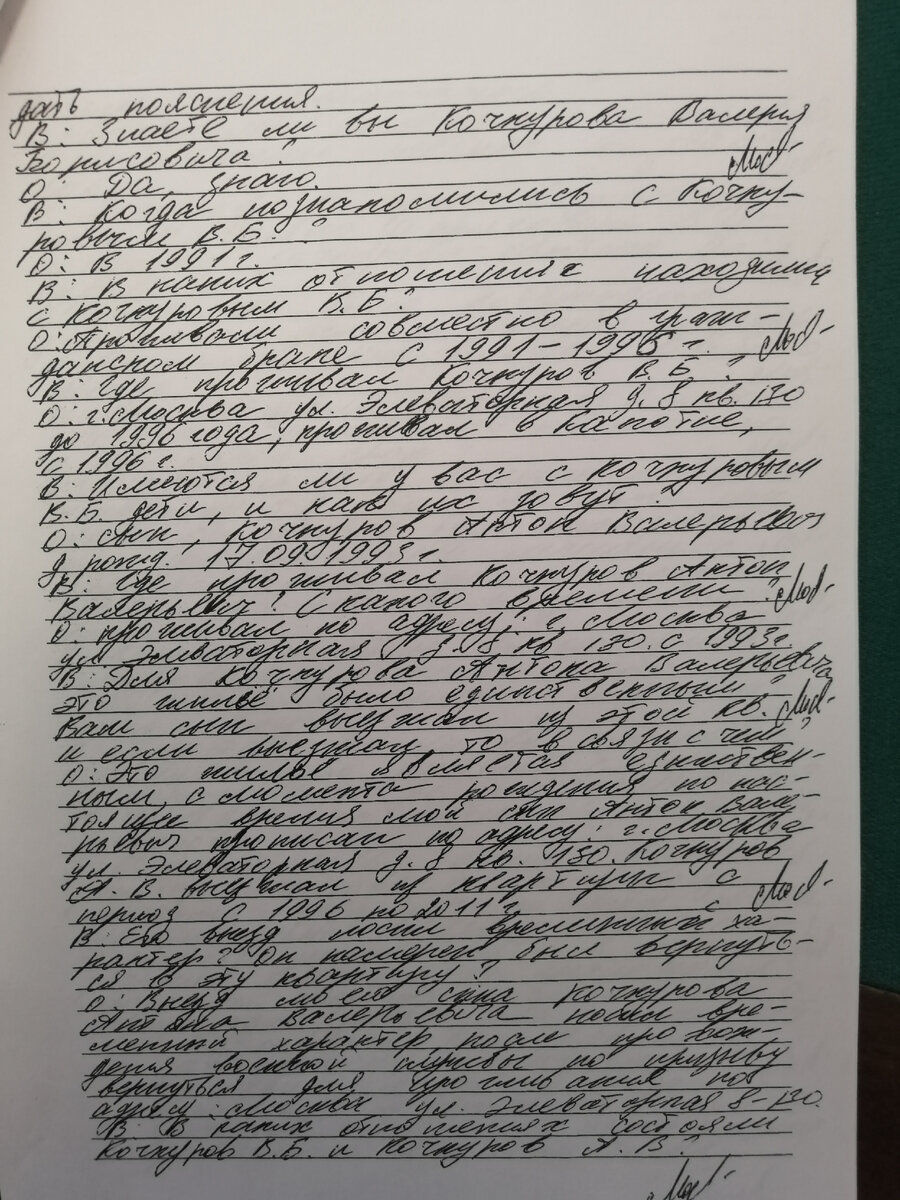 дать пояснения.
В: Знаете ли вы Кочкурова Валерия
Борисовича?
О: Да, знаю.
В: Когда познакомились с Кочку-
ровым В.Б.?
О: В 1991 г.
В: В каких отношениях находились
с Кочкуровым В.Б.?
О: Проживали совместно в граж-
данском браке с 1991-1996 г.
В: Где проживал Кочкуров В.Б.?
О: г. Москва ул. Элеваторная д. 8 кв. 130
до 1996 года, проживал в Капотне,
с 1996 г.
В: Имеются ли у вас с Кочкуровым
В.Б. дети, и как их зовут?
О: сын, Кочкуров Антон Валерьевич
д. рожд. 17.09.1993 г.
В: Где проживал Кочкуров Антон
Валерьевич? С какого времени?
О: проживал по адресу: г. Москва
ул. Элеваторная д. 8 кв 130. с 1993 г.
В: Для Кочкурова Антона Валерьевича
это жильё было единственным?
Ваш сын выезжал из этой кв.
и если выезжал, то в связи с чем?
О: Это жильё является единствен-
ным, с момента рождения по нас-
тоящее время мой сын Антон Вале-
рьевич прописан по адресу: г. Москва
ул. Элеваторная д. 8 кв. 130. Кочкуров
А. В. выезжал из квартиры с
период с 1996 по 2011 г.
В: Его выезд носил временный ха-
рактер? Он намерен был вернуть-
ся в эту квартиру?
О: Выезд моего сына Кочкурова
Антона Валерьевича носил вре-
менный характер, после прохож-
дения военной службы по призыву
вернуться для проживания по
адресу: Москва ул. Элеваторная 8-130.
В: В каких отношениях состояли
Кочкуров В.Б. и Кочкуров А. В.?